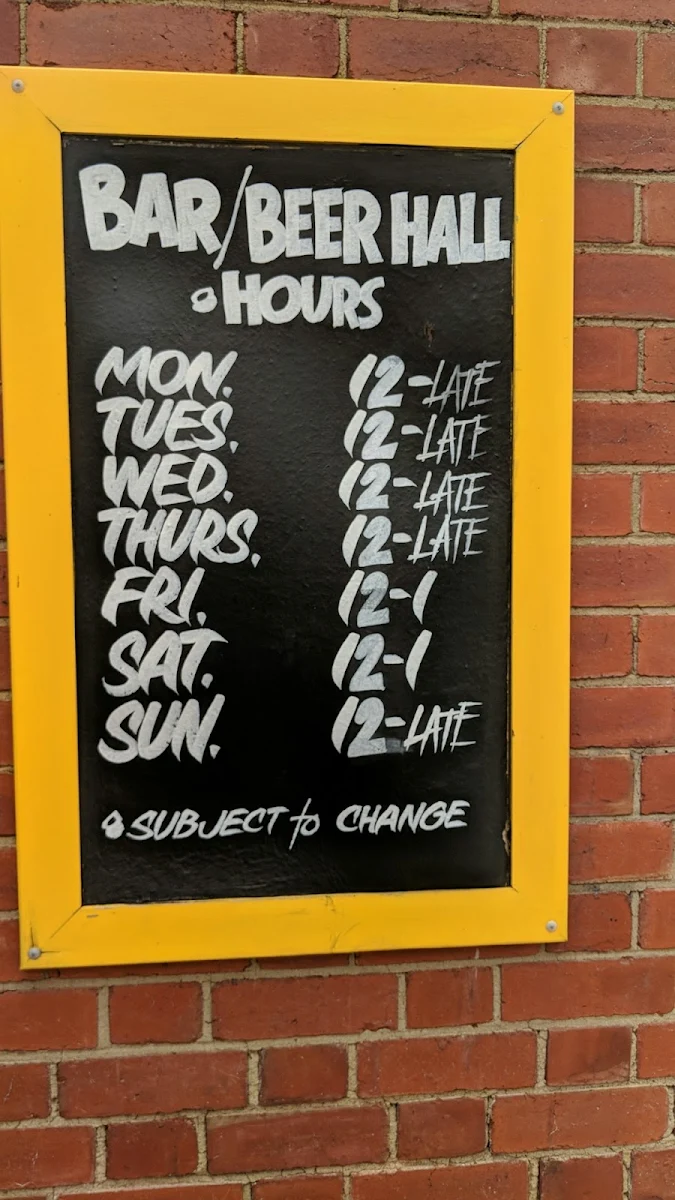 BAR/BEER HALL
HOURS
MON. 12-LATE
TUES. 12-LATE
WED. 12-LATE
THURS. 12-LATE
FRI. 12-1
SAT. 12-1
SUN. 12-LATE
SUBJECT to CHANGE